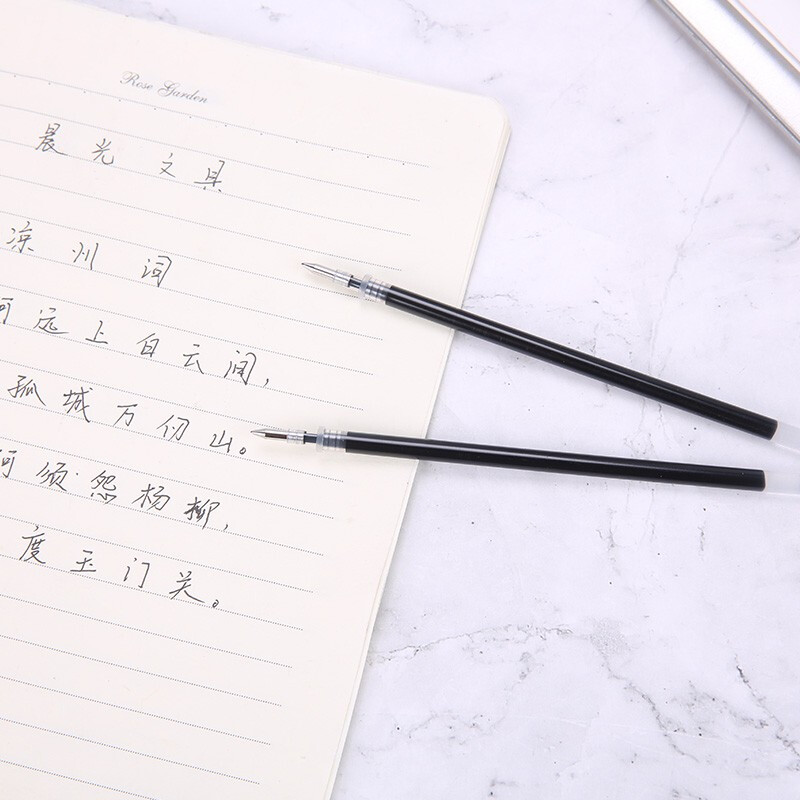 Rose Garden
晨光文具
凉州词
河远上白云间，
孤城万仞山。
何须怨杨柳，
度玉门关。